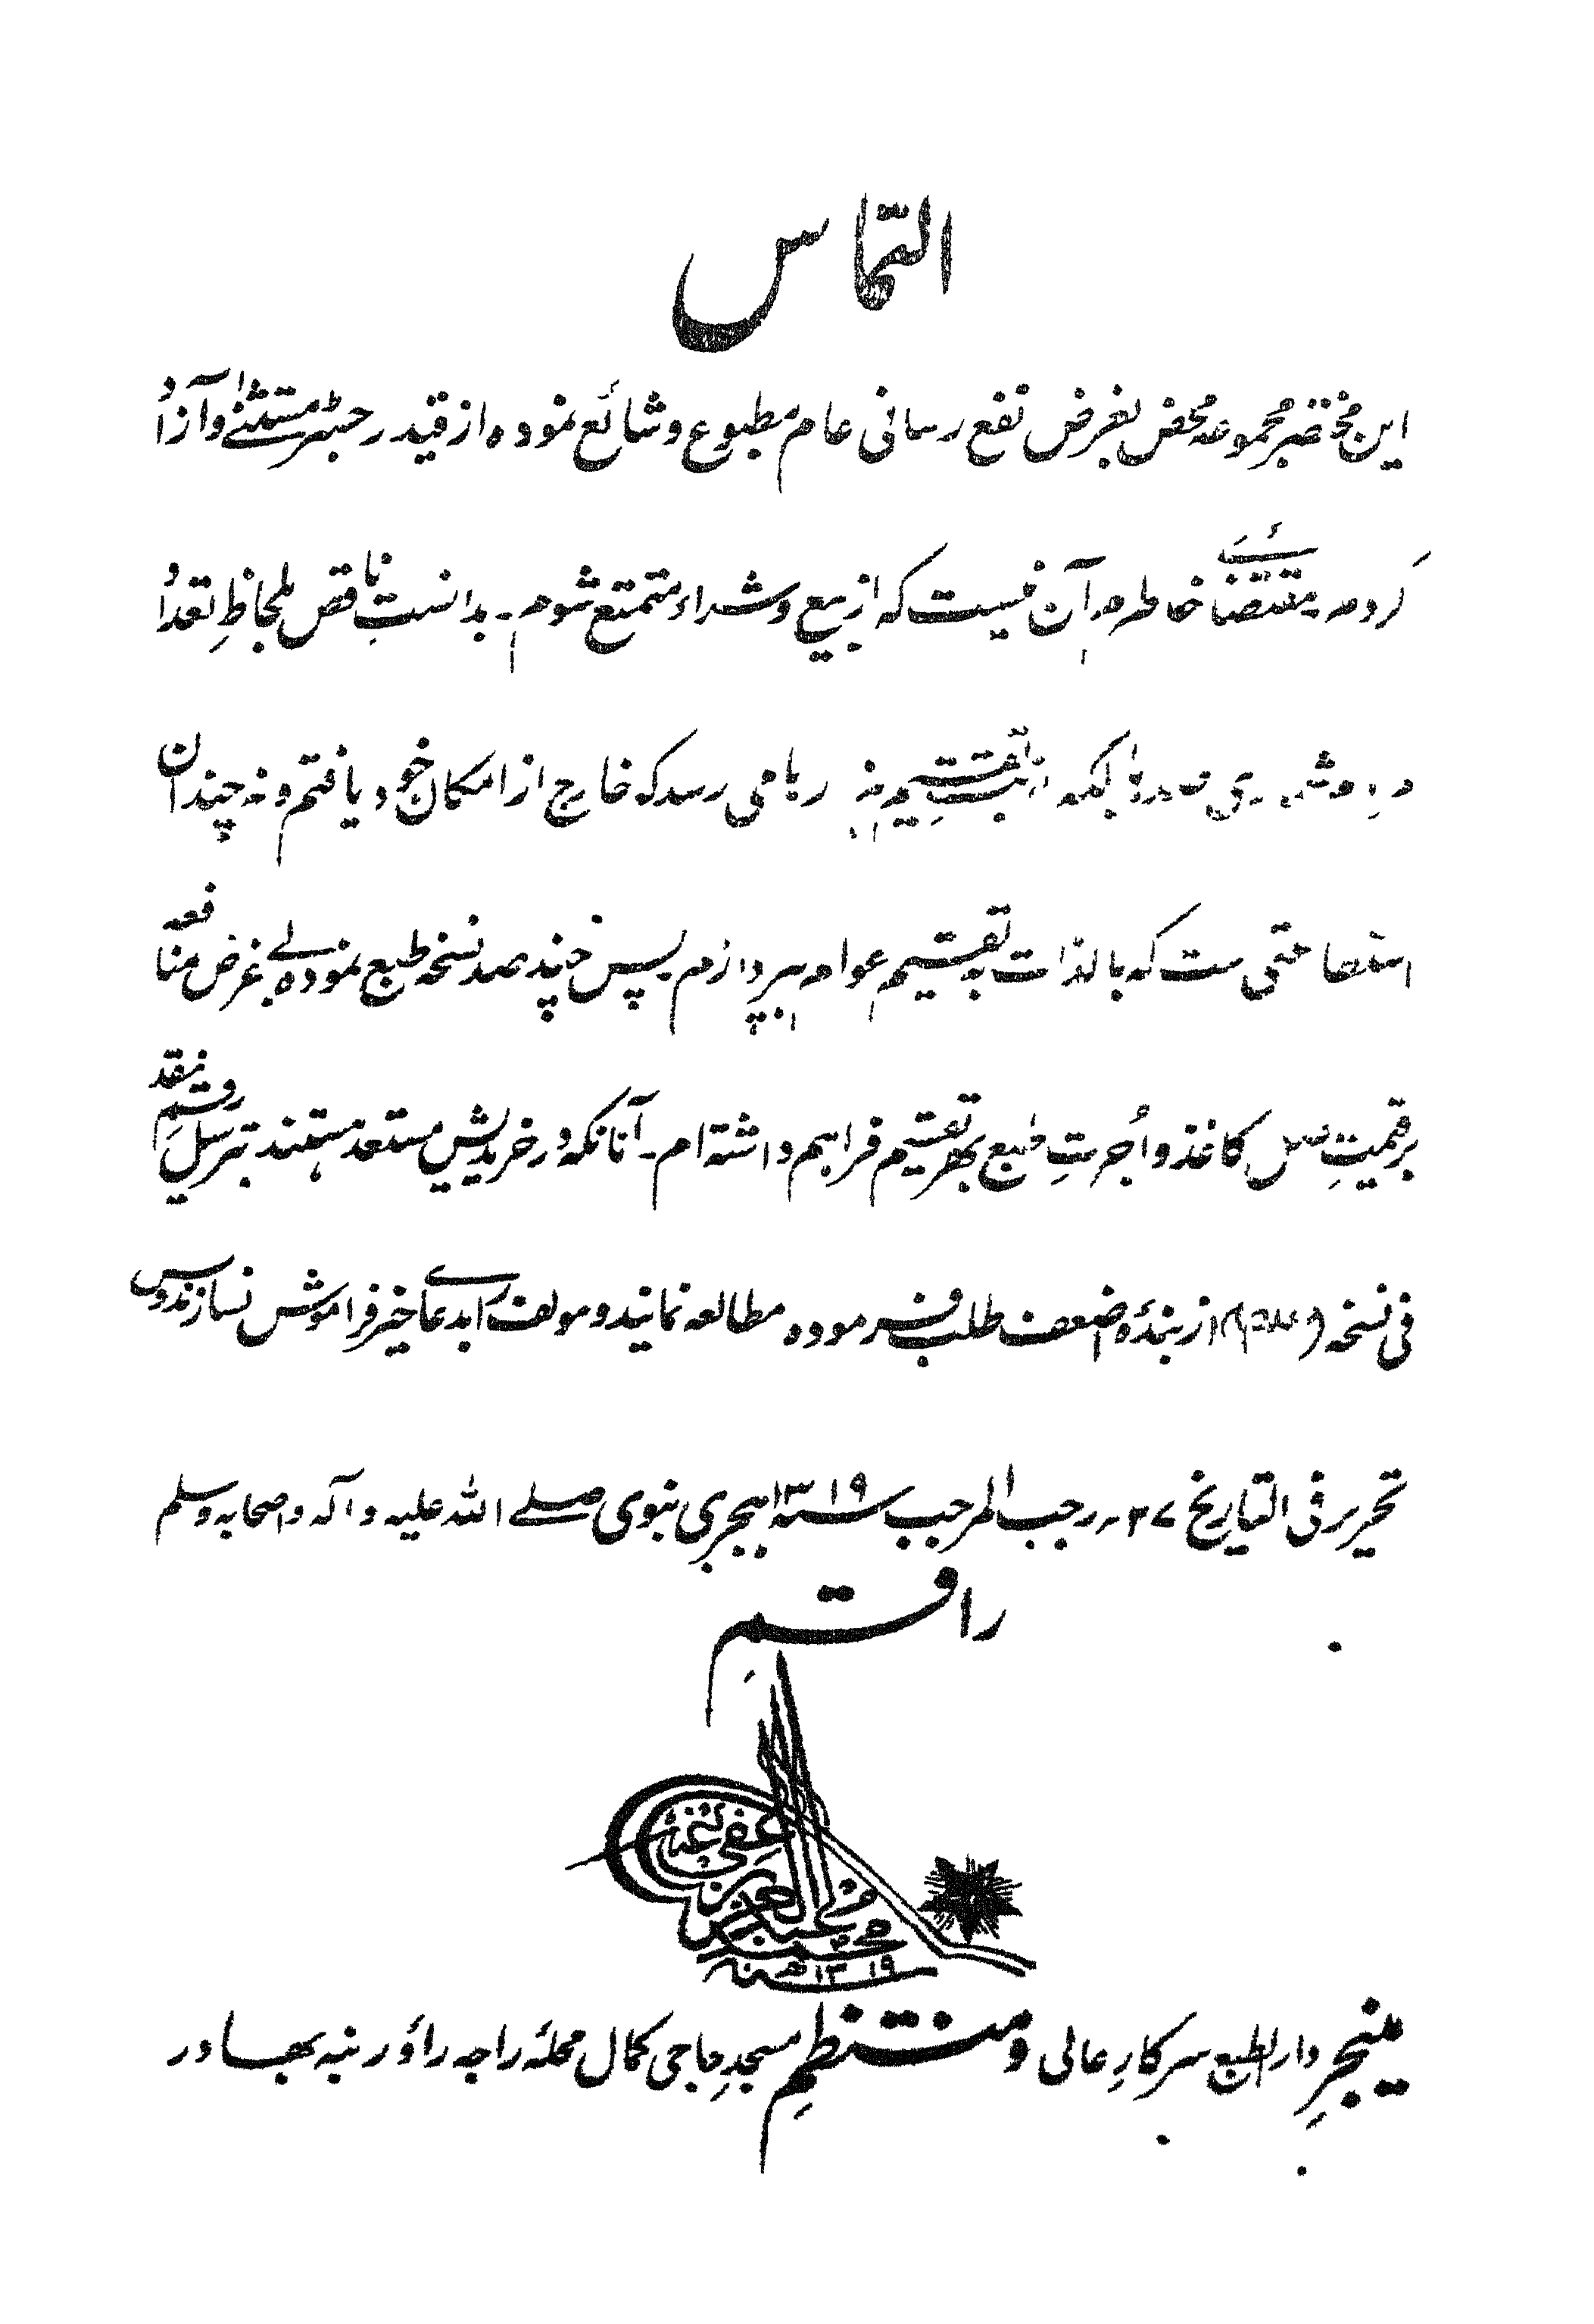 التماس
این مختصر مجموعه محض بغرض نفع رسانی عام مطبوع و شائع نموده از قید رجسٹر مستثنیٰ و آزاد
کردم۔ مقتضائے خاطرم آن نیست که از بیع و شراء متمتع شوم۔ بدانست ناقص بلحاظِ تعداد
بلکه تقسیم می رسد که خارج از امکان خود یافتم و نه چندان
استطاعتی ست که بالذات به تقسیم عوام بپردازم پس چند صد نسخه طبع نموده بے غرض منافعه
بر قمیتِ کاغذ و اُجرتِ طبع بهر تقسیم فراهم داشته ام۔ آنانکه در خریدیش مستعد هستند بترسیلِ رقمِ نقد
فی نسخه از بندۂ اضعف طلب فرموده مطالعه نمایند و مولف را بدعاے خیر فراموش نسازند و بس
تحریر فی التاریخ ۲۷ رجب المرجب سنه ۱۳۱۹ هجری نبوی صلے الله علیه و آله و اصحابه وسلم
راقمِ
محمد عبد العزیز عفی عنه
سنه ۱۳۱۹ ه
مینیجرِ دار الطبع سرکارِ عالی و منتظمِ مسجدِ حاجی کمال محلۂ راجه راؤ رنبه بهادر